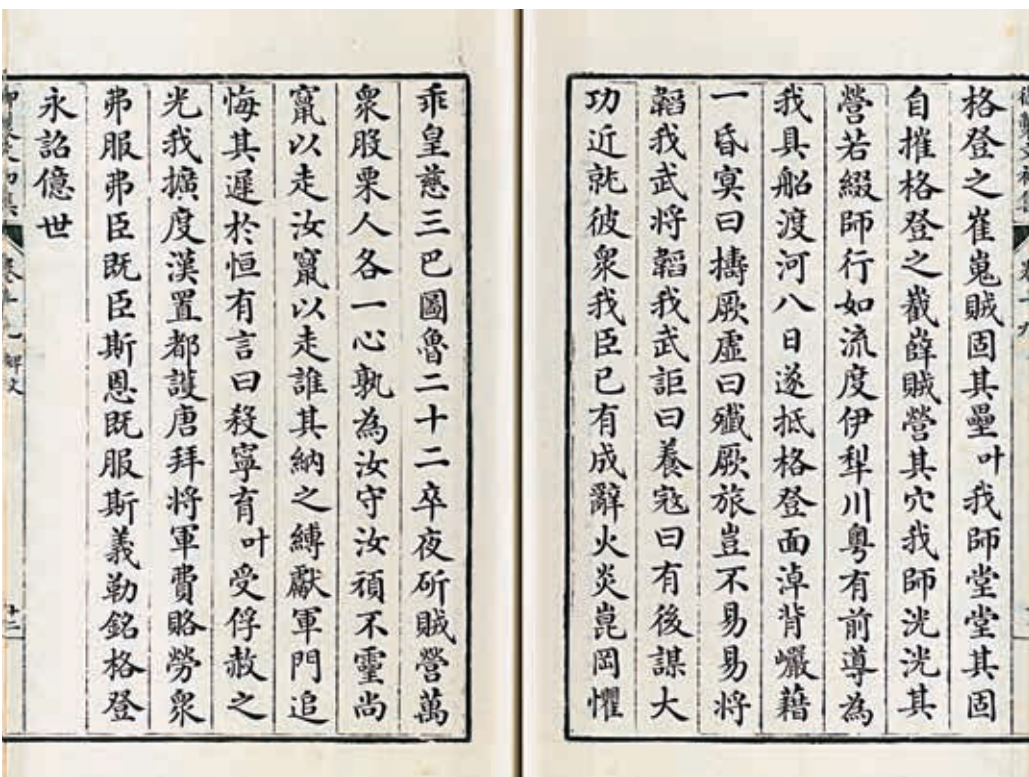 格登之崔嵬賊固其壘叶我師堂堂其固
自摧格登之巀嶭賊營其穴我師洸洸其
營若綴師行如流度伊犁川粵有前導為
我具船渡河八日遂抵格登面淖背巘藉
一昏冥曰擣厥虛曰殲厥旅豈不易易將
韜我武將韜我武詎曰養寇曰有後謀大
功近就彼衆我臣已有成辭火炎崑岡懼
乖皇慈三巴圖魯二十二卒夜斫賊營萬
衆股栗人各一心孰為汝守汝頑不靈尚
竄以走汝竄以走誰其納之縛獻軍門追
悔其遲於恒有言曰殺寧育叶受俘赦之
光我擴度漢置都護唐拜將軍費賂勞衆
弗服弗臣既臣斯恩既服斯義勒銘格登
永詔億世
十二